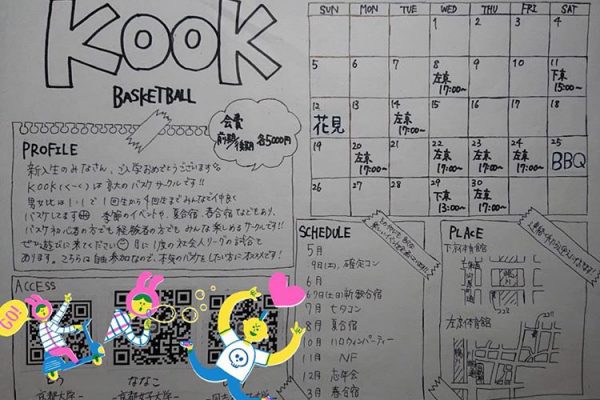 KooK
BASKETBALL
会費
前期/後期 各5000円
PROFILE
新入生のみなさん、ご入学おめでとうございます。
KOOK(くーく)は京大のバスケサークルです!!
男女比は1:1で1回生から4回生までみんなで仲良く
バスケしてます 季節のイベントや、夏合宿、春合宿などもあり、
バスケ初心者の方でも経験者の方でもみんな楽しめるサークルです!!
ぜひ遊びに来てください 月に1度の社会人リーグの試合も
あります。こちらは自由参加なので、本気のバスケをしたい方にオススメです!
ACCESS
GO!
ななこ
-京都大学-
-京都女子大学-
SUN MON TUE WED THU FRI SAT
1 2 3 4
5 6 7 8 9 10 11
左京 17:00~
下京 15:00~
12 13 14 15 16 17 18
花見
左京 17:00~
19 20 21 22 23 24 25
左京 17:00~
左京 17:00~
左京 17:00~
左京 17:00~
BBQ
26 27 28 29 30
左京 13:00~
左京 17:00~
SCHEDULE
5月
9日(土)、確定コン
6月
6,7日(土日)新歓合宿
7月 七夕コン
8月 夏合宿
10月 ハロウィンパーティー
11月 NF
12月 忘年会
3月 春合宿
PLACE
下京体育館
左京体育館